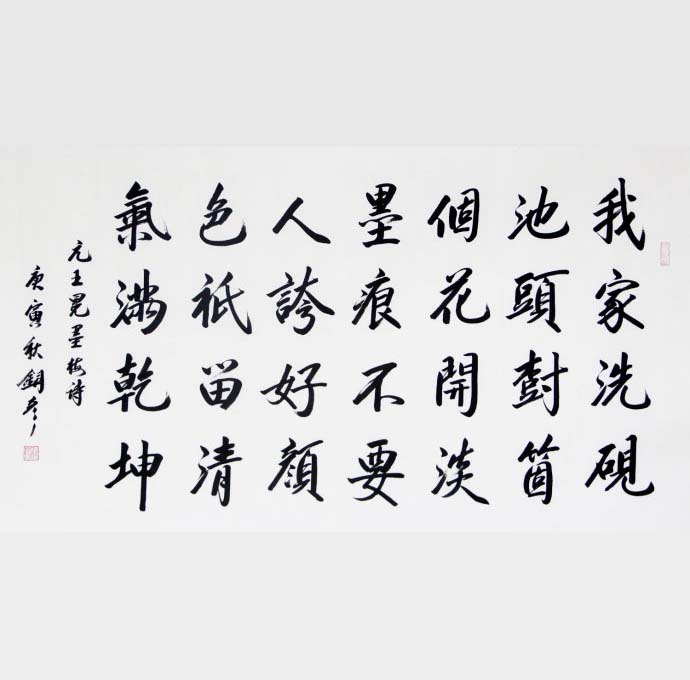 我家洗硯
池頭尌箇
個花開淡
墨痕不要
人誇好顏
色祇留清
氣滿乾坤
元王冕墨梅詩
庚寅秋